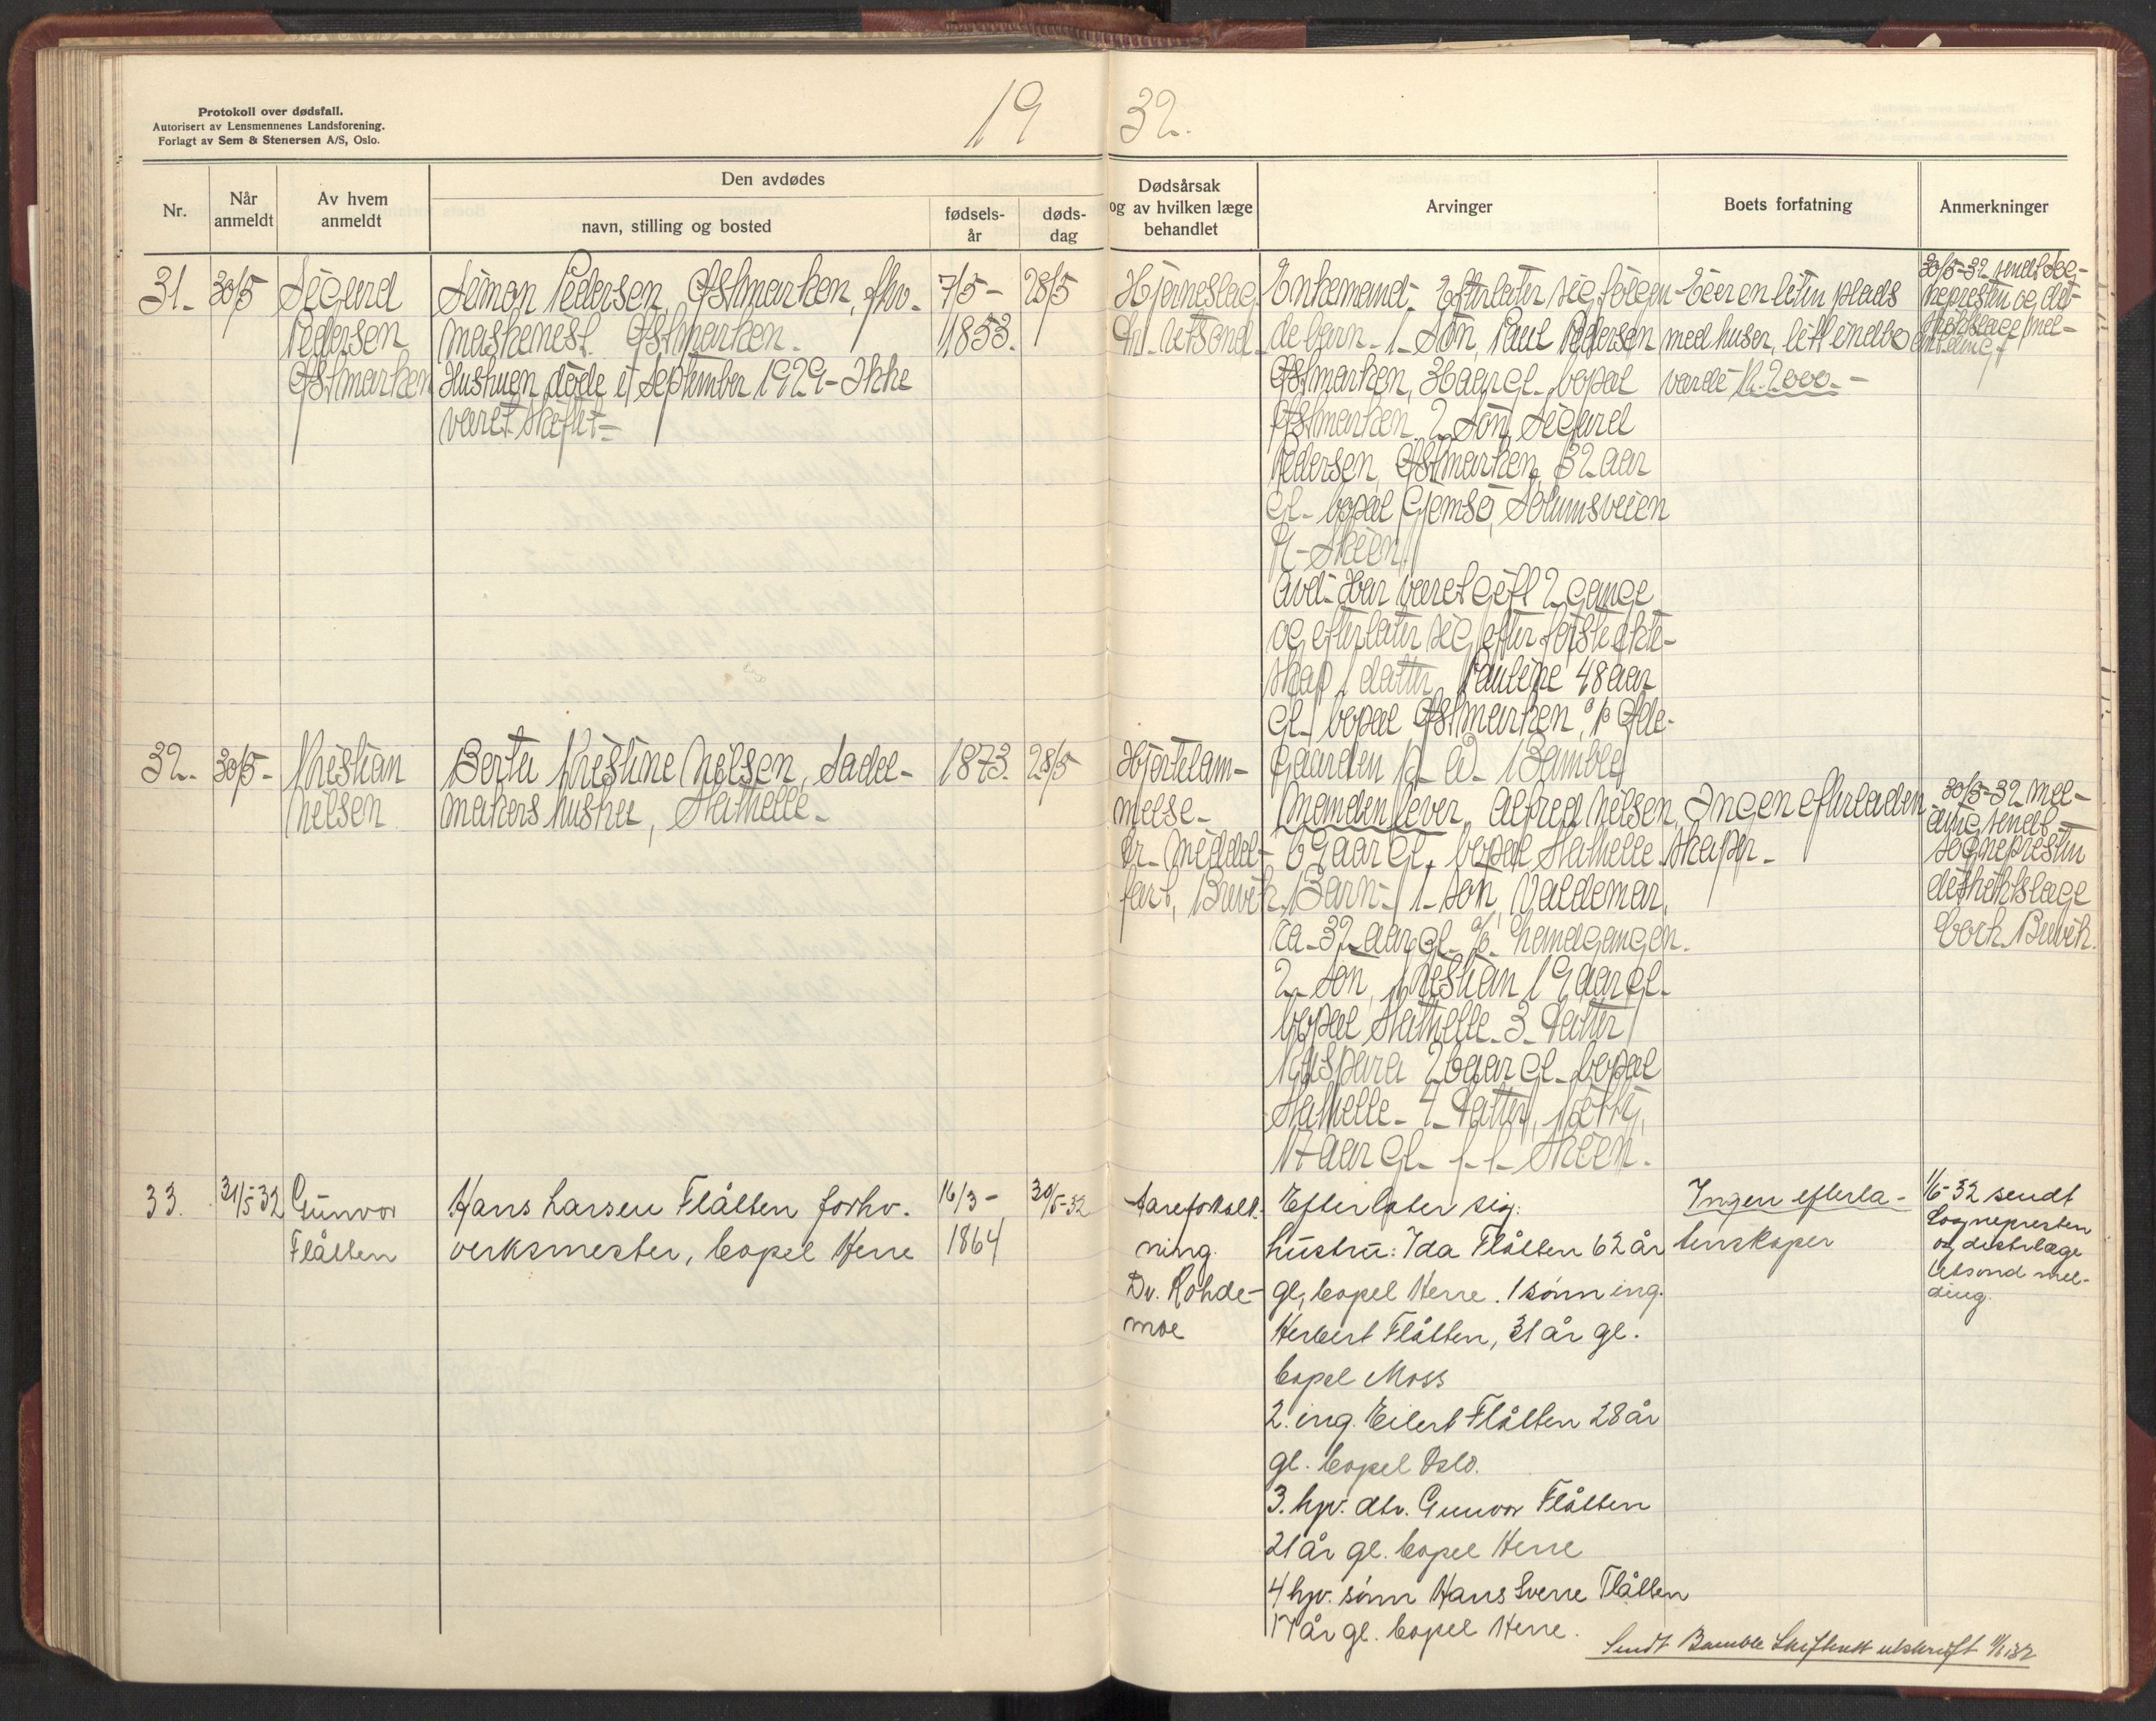 Protokoll over dødsfall.
Autorisert av Lensmennenes Landsforening.
Forlagt av Sem & Stenersen A/S, Oslo.
19 32.
Nr.
Når anmeldt
Av hvem anmeldt
Den avdødes
navn, stilling og bosted
fødsels-år
døds-dag
Dødsårsak og av hvilken læge behandlet
Arvinger
Boets forfatning
Anmerkninger
31-
30/5
Sigurd
Pedersen
Østmarken
Simon Pedersen, Østmarken, fhv.
maskinist. Østmarken.
Hustruen døde i september 1929 - Ikke
været skiftet -
7/5 -
1853.
28/5
Hjerneslag
Dr. Utsond
Enkemand - Efterlater sig følgen-
de barn - 1 - Søn, Paul Pedersen
Østmarken, 36 aar gl. bopæl
Østmarken 2 Søn, Sigurd
Pedersen, Østmarken, 32 aar
gl - bopæl Gjemsø, Solumsveien
- Skien
Avd - Har været gift 2 gange
og efterlater sig efter første ekte-
skap 1 datter, Pauline 48 aar
gl - bopæl Østmarken,
gaarden p - a - Bamble
Eier en liten plads
med huser, litt indbo
værdi K. 2000. -
30/5-32 sendt Sog-
nepresten og dist-
riktslæge mel-
ding
32-
30/5-
Kristian
Nilsen
Berta Kristine Nilsen, Sadel-
makers hustru, Stathelle -
1873.
28/5
Hjertelam-
melse -
Dr - Middel-
fart, Brevik
Manden lever, Alfred Nilsen,
69 aar gl, bopæl Stathelle
Barn - 1 - søn, Valdemar,
ca - 32 aar gl -
2 - Søn, Kristian 19 aar gl -
bopæl Stathelle - 3 - Datter
Kaspara 26 aar gl - bopæl
Stathelle - 4 - Datter,
17 aar gl - f - t - Skien -
Ingen efterladen-
skaper -
30/5-32 Mel-
ding sendt
sognepresten
distriktslæge
Brevik.
33.
31/5-32
Gunvor
Flåtten
Hans Larsen Flåtten forhv.
verksmester, bopel Herre
16/3 -
1864
30/5-32
Aareforkalk-
ning.
Dr. Rohde-
moe
Efterlater sig:
hustru: Ida Flåtten 62 år
gl, bopel Herre. 1 sønn ing.
Herbert Flåtten, 31 år gl.
bopel Moss
2. ing. Eilert Flåtten 28 år
gl. bopel Oslo.
3. hjv. dtr. Gunvor Flåtten
21 år gl. bopel Herre
4 hjv. sønn Hans Sverre Flåtten
17 år gl. bopel Herre.
Ingen efterla-
tenskaper
1/6-32 sendt
Sognepresten
og distr.læge
Utsond mel-
ding.
Sendt Bamble Skifterett utskrift